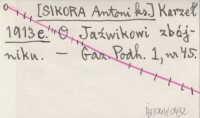 [SIKORA Antoni ks.] Karzeł
1913 e. O Jaźwikowi zbój-
niku. — Gaz. Podh. 1, nr 45.